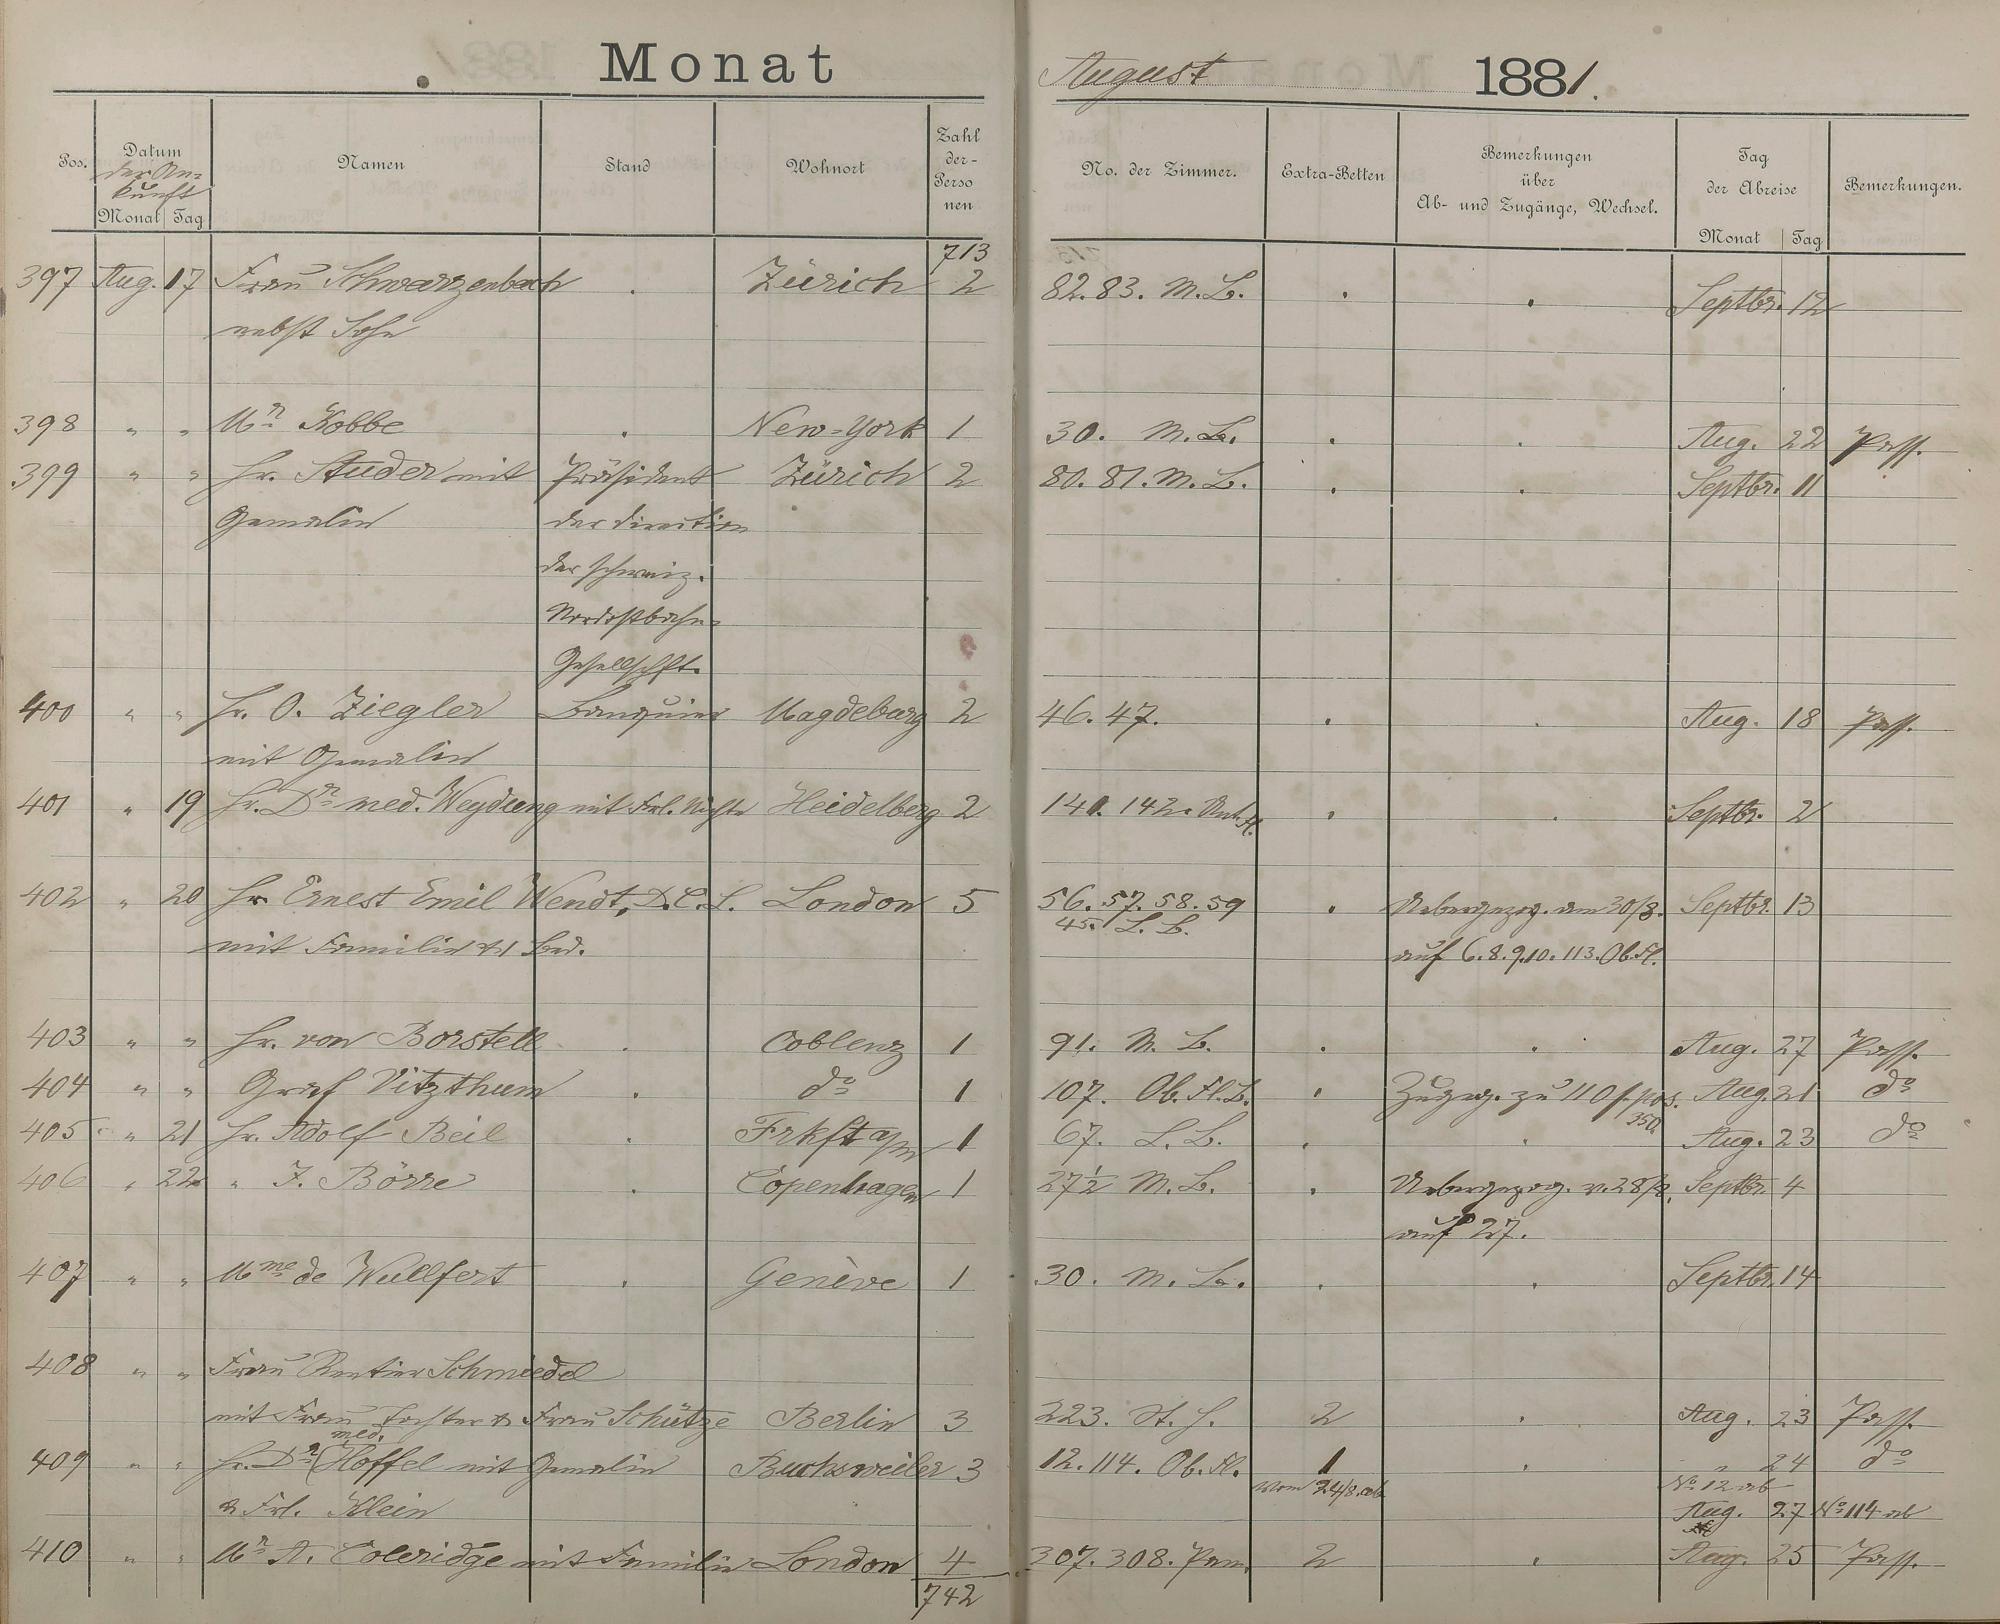 Monat August 1881.
Pos. Datum der An= kunft Monat Tag Namen Stand Wohnort Zahl der- Perso nen No. der Zimmer. Extra-Betten Bemerkungen über Ab- und Zugänge, Wechsel. Tag der Abreise Monat Tag Bemerkungen.
713
397 Aug. 17 Frau Schwarzenbach . Zürich 2 82. 83. M. L. . . Septbr. 12
nebst Sohn
398 " " Mr Kobbe . New=York 1 30. M. L. . . Aug. 22 Pass.
399 " " Hr. Studer mit Präsident Zürich 2 80. 81. M. L. . . Septbr. 11
Gemalin der Direction
der schweiz.
Nordostbahn=
Gesellschft.
400 " " Hr. O. Ziegler Banquier Magdeburg 2 46. 47. . . Aug. 18 Pass.
mit Gemalin
401 " 19 Hr. Dr med. Weydung mit Frl. Nichte Heidelberg 2 141. 142. Unt. Fl. . . Septbr. 2
402 " 20 Hr Ernest Emil Wendt, D. C. L. London 5 56. 57. 58. 59 . Uebergezog. am 30/8. Septbr. 13
45. L. B.
mit Familie & 1 Bed. auf 6. 8. 9. 10. 113. Ob. Fl.
403 " " Hr. von Borstell . Coblenz 1 91. M. L. . . Aug. 27 Pass.
404 " " Graf Vitzthum . do 1 107. Ob. Fl. L. . Zugzog. zu 110 f. pos. Aug. 21 do
350.
405 " 21 Hr. Adolf Beil . Frkft a/m 1 67. L. L. . . Aug. 23 do
406 " 22 " J. Börre . Copenhagen 1 27½ M. L. . Uebergezog. v. 28/8. Septbr. 4
auf 27.
407 " " Mme de Wullfert . Genève 1 30. M. L. . . Septbr. 14
408 " " Frau Rentier Schmiedel
mit Frau Tochter & Frau Schütze Berlin 3 223. St. H. 2 . Aug. 23 Pass.
med.
409 " " Hr. Dr Hoffel mit Gemalin Buchsweiler 3 12. 114. Ob. Fl. 1 . " 24 do
vom 24/8. ab No 12 ab
& Frl. Klein Aug. 27 No 114 ab
410 " " Mr A. Coleridge mit Familie London 4 307. 308. 2 . Aug. 25 Pass.
742